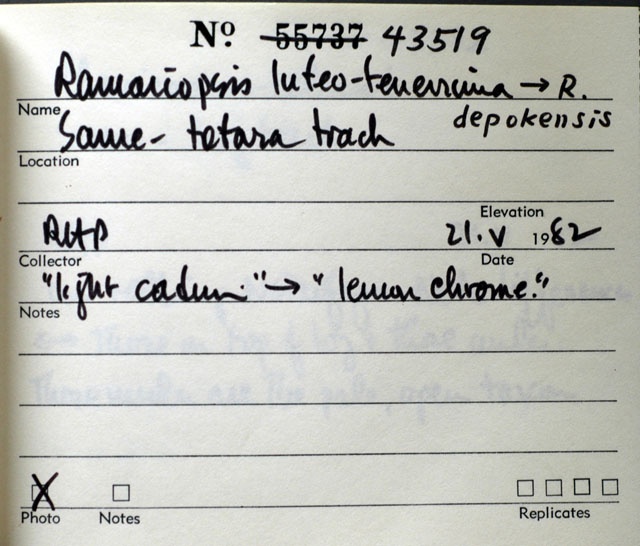 Nº 55737 43519
Ramariopsis luteo-tenerrima → R.
Name depokensis
Same - totara track
Location
Elevation
RHP 21.V 1982
Collector Date
"light cadmi." → "lemon chrome."
Notes
Photo Notes Replicates